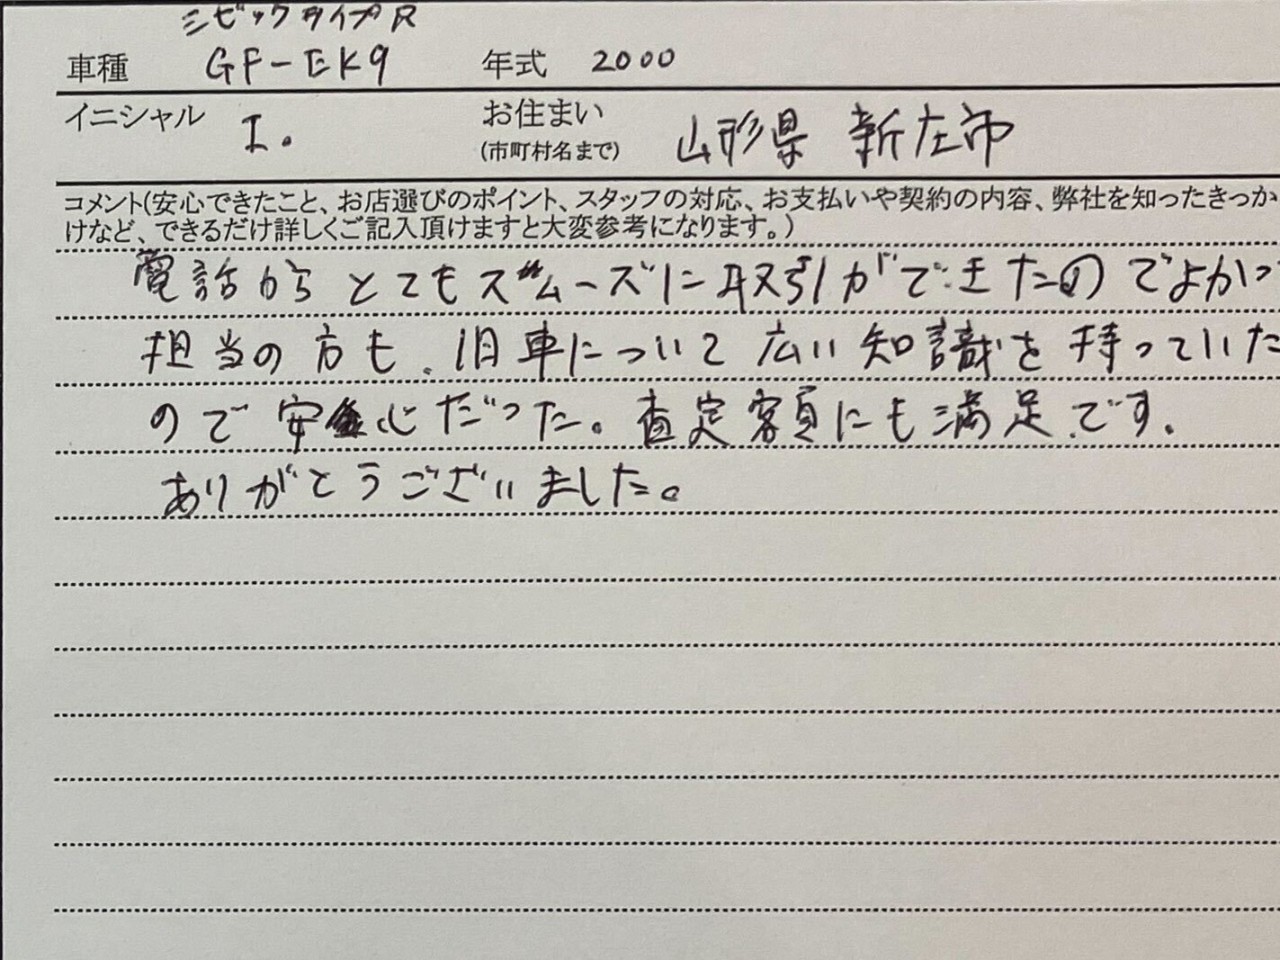 シビックタイプR
車種 GF-EK9 年式 2000
イニシャル I. お住まい
(市町村名まで) 山形県 新庄市
コメント(安心できたこと、お店選びのポイント、スタッフの対応、お支払いや契約の内容、弊社を知ったきっか
けなど、できるだけ詳しくご記入頂けますと大変参考になります。)
電話からとてもスムーズに取引ができたのでよかっ
担当の方も、旧車について広い知識を持っていた
ので安心だった。査定額にも満足です。
ありがとうございました。